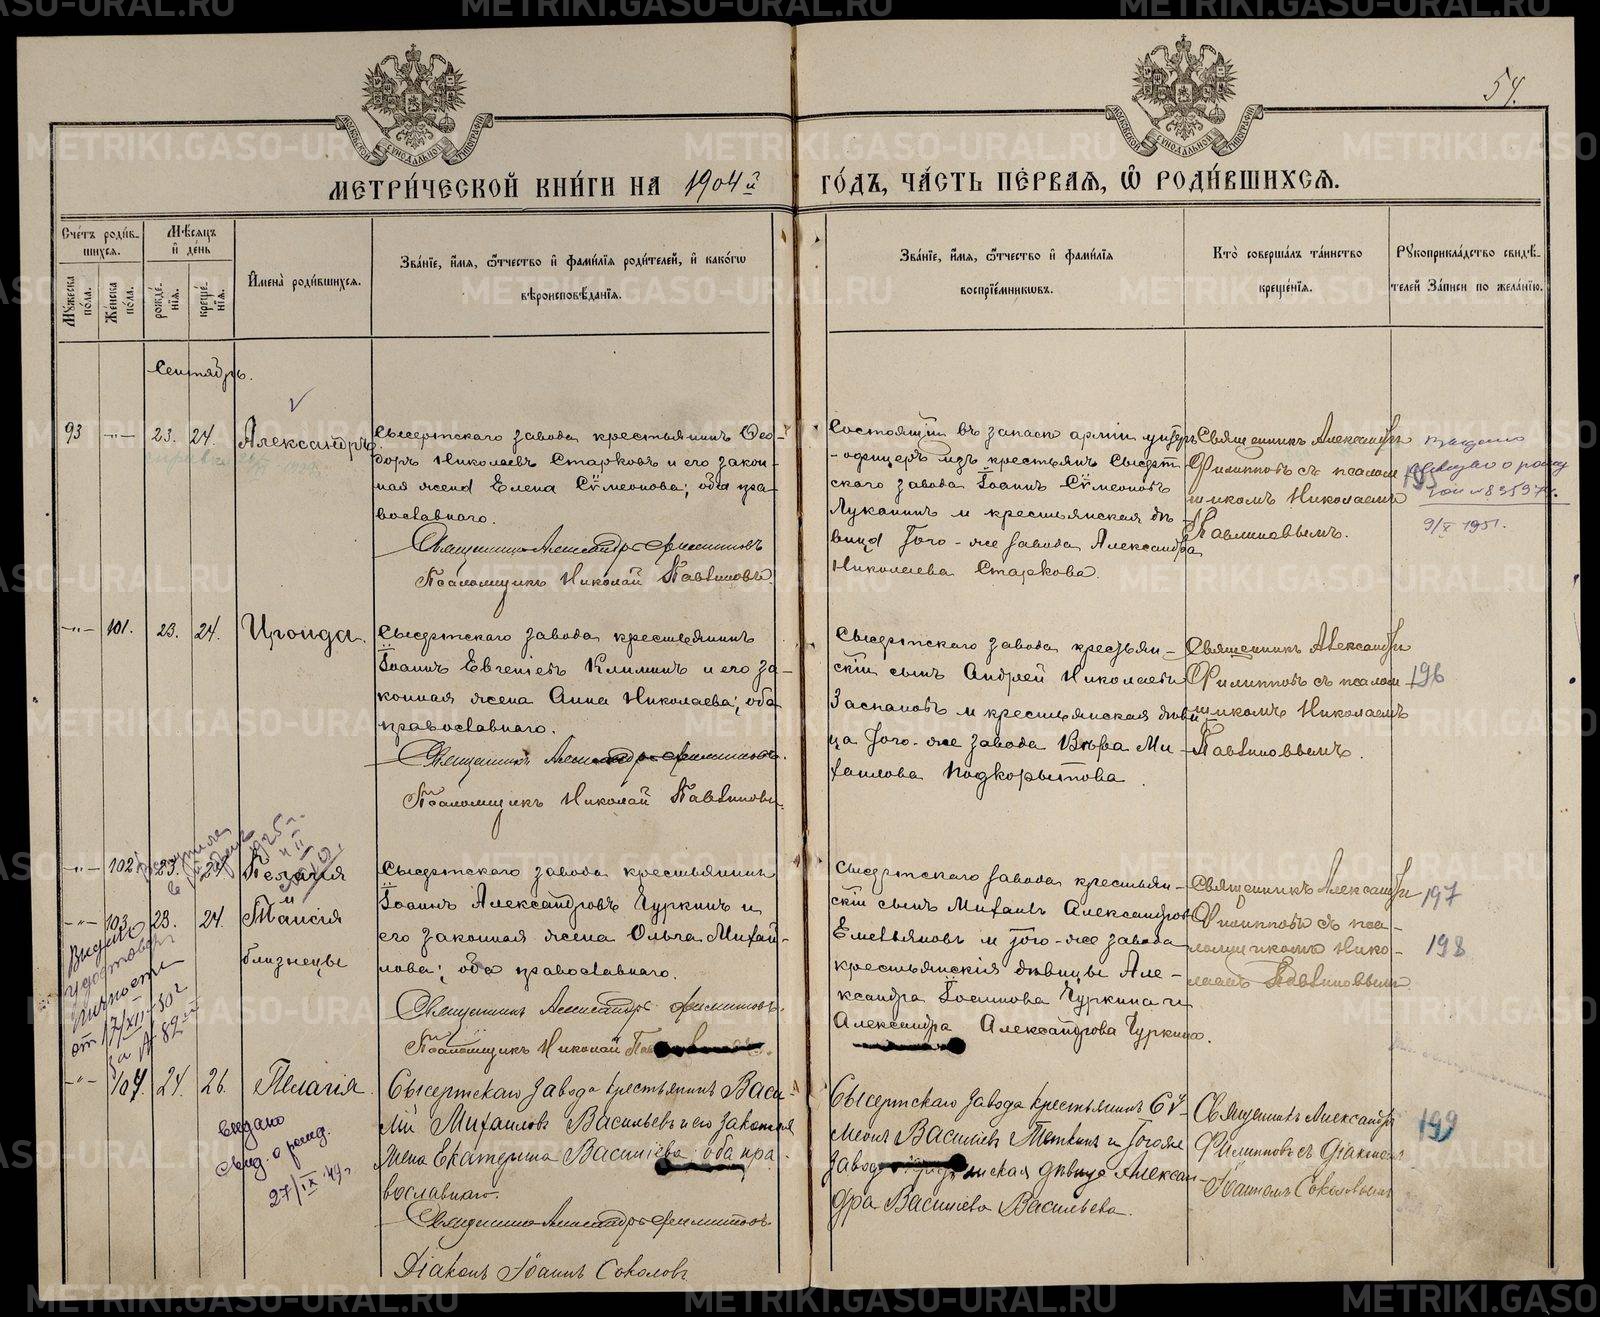 54.
МЕТРИ́ЧЕСКОЙ КНИ́ГИ НА 1904й ГО́ДЪ, ЧА́СТЬ ПЕ́РВАЯ, Ѡ РОДИ́ВШИХСЯ.
Счетъ роди́вшихся.
Му́жеска по́ла.
Же́нска по́ла.
Мѣ́сяцъ и де́нь
рожде́нія.
креще́нія.
И́мена роди́вшихся.
Зва́ніе, и́мя, ѻтчество и фами́лія роди́телей, и како́гѡ
вѣроисповѣ́данія.
Зва́ніе, и́мя, ѻтчество и фами́лія
воспріе́мниковъ.
Кто̀ соверша́лъ та́инство
креще́нія.
Рукоприкла́дство свидѣ́телей за́писи по жела́нію.
Сентябрь.
93 -"- 23. 24. Александръ
Сысертскаго завода крестьянинъ Ѳео-
доръ Николаевъ Старковъ и его закон-
ная жена Елена Сѵмеонова; оба пра-
вославнаго.
Священникъ Александръ Филипповъ
Псаломщикъ Николай Павлиновъ.
Состоящій въ запасѣ арміи унтеръ
-офицеръ изъ крестьянъ Сысерт-
скаго завода Іоаннъ Сѵмеоновъ
Луканинъ и крестьянская дѣ-
вица того-же завода Александра
Николаева Старкова.
Священникъ Александръ
Филипповъ съ псалом-
щикомъ Николаемъ
Павлиновымъ.
195
Выдано
свид-во о рожд
9/X 1951.
-"- 101. 23. 24. Ираида.
Сысертскаго завода крестьянинъ
Іоаннъ Евгеніевъ Климинъ и его за-
конная жена Анна Николаева; оба
православнаго.
Священникъ Александръ Филипповъ.
Псаломщикъ Николай Павлиновъ.
Сысертскаго завода крестьян-
скій сынъ Андрей Николаевъ
Заспановъ и крестьянская дѣви-
ца того-же завода Вѣра Ми-
хаилова Подкорытова.
Священникъ Александръ
Филипповъ съ псалом-
щикомъ Николаемъ
Павлиновымъ.
196
-"- 102. 23. 24. Пелагія
-"- 103. 23. 24. и Таисія
близнецы
1925 г.
Сысертскаго завода крестьянинъ
Іоаннъ Александровъ Чуркинъ и
его законная жена Ольга Михай-
лова; оба православнаго.
Священникъ Александръ Филипповъ.
Псаломщикъ Николай
Сысертскаго завода крестьян-
скій сынъ Михаилъ Александровъ
Емельяновъ и того-же завода
крестьянскія дѣвицы Але-
ксандра Іоаннова Чуркина и
Александра Александрова Чуркина.
Священникъ Александръ
Филипповъ съ пса-
ломщикомъ Нико-
лаемъ Павлиновымъ.
197
198
Выдано
удостовер
личности
от 17/XII-30г
за № 82
-"- 104. 24. 26. Пелагія.
выдано
свид. о рожд.
27/IX 49г
Сысертскаго завода крестьянинъ Васи-
лій Михаиловъ Васильевъ и его законная
жена Екатерина Васильева; оба пра-
вославнаго.
Священникъ Александръ Филипповъ.
Діаконъ Іоаннъ Соколовъ
Сысертскаго завода крестьянинъ Сѵ-
меонъ Васильевъ Теткинъ и тогоже
завода крестьянская дѣвица Алексан-
дра Васильева Васильева.
Священникъ Александръ
Филипповъ съ діакономъ
Іоанномъ Соколовымъ
199
METRIKI.GASO-URAL.RU